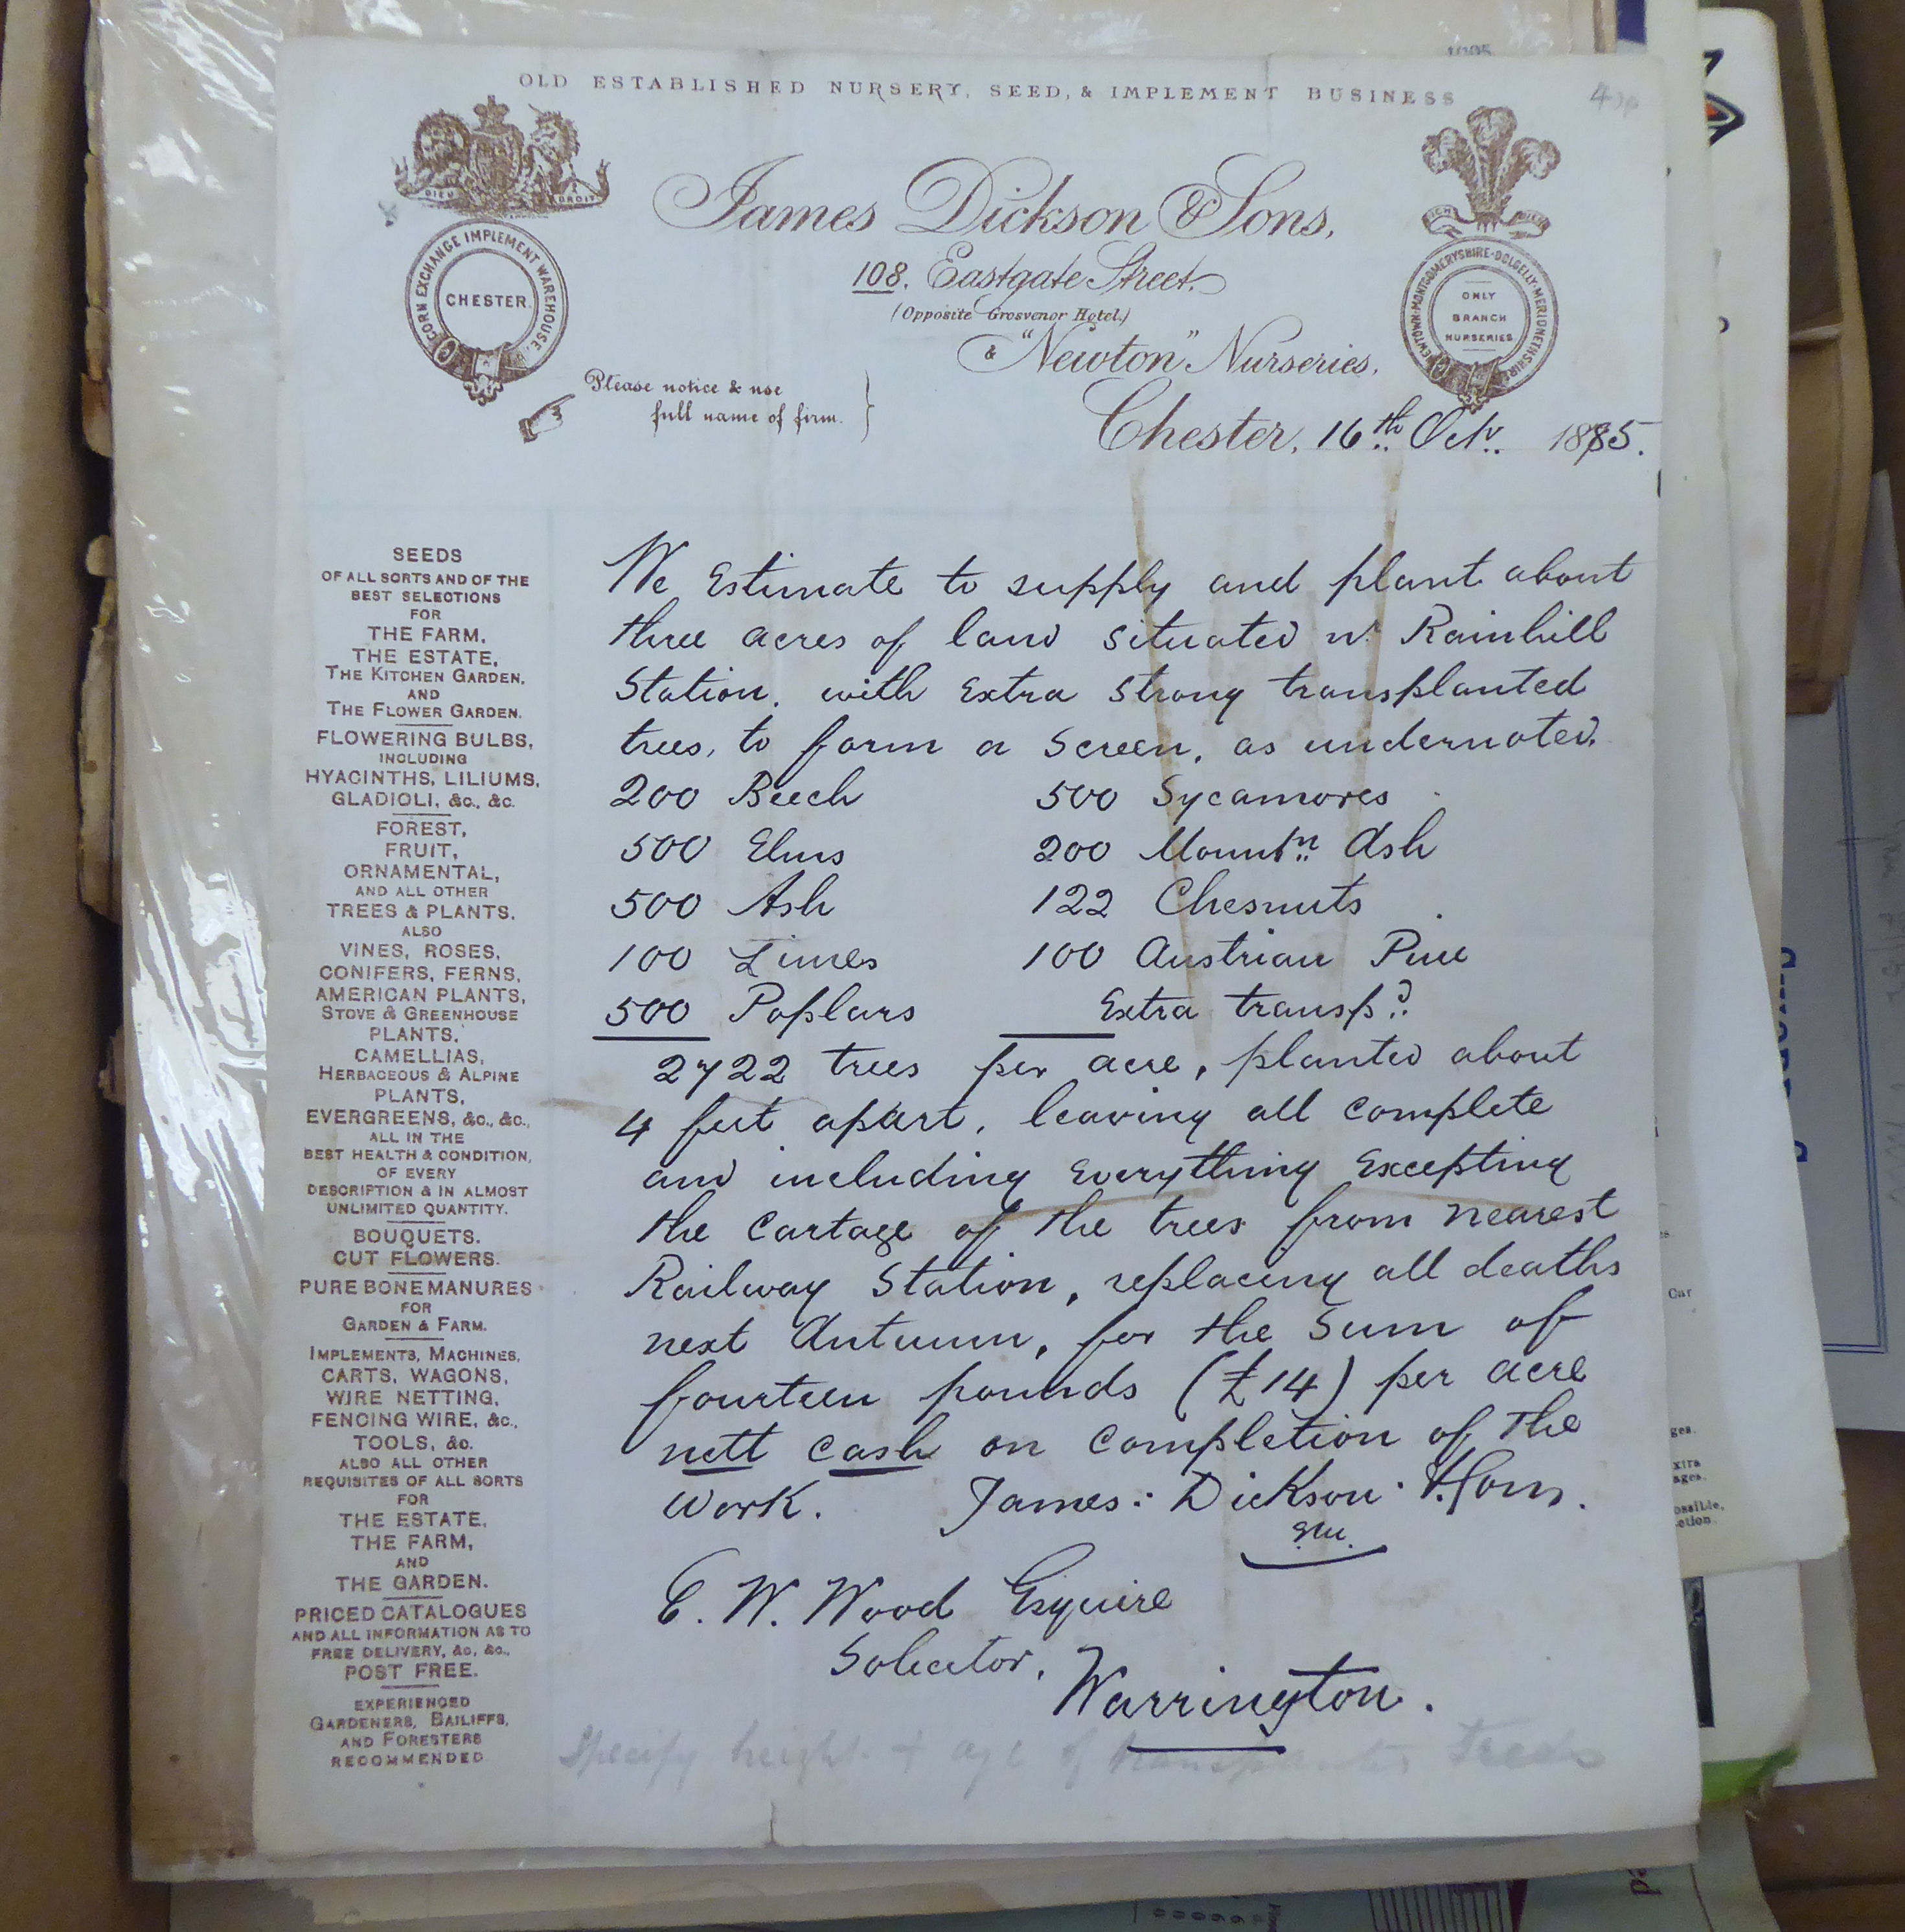 OLD ESTABLISHED NURSERY, SEED, & IMPLEMENT BUSINESS
DIEU DROIT
CORN EXCHANGE IMPLEMENT WAREHOUSE.
CHESTER.
ICH DIEN
NEWTOWN-MONTGOMERYSHIRE-DOLGELLY-MERIONETHSHIRE
ONLY
BRANCH
NURSERIES
James Dickson & Sons,
108. Eastgate Street.
(Opposite Grosvenor Hotel.)
& "Newton" Nurseries.
Please notice & use
full name of firm.
Chester, 16th Octr. 1885.
SEEDS
OF ALL SORTS AND OF THE
BEST SELECTIONS
FOR
THE FARM,
THE ESTATE,
THE KITCHEN GARDEN,
AND
THE FLOWER GARDEN.
FLOWERING BULBS,
INCLUDING
HYACINTHS, LILIUMS,
GLADIOLI, &c., &c.
FOREST,
FRUIT,
ORNAMENTAL,
AND ALL OTHER
TREES & PLANTS.
ALSO
VINES, ROSES,
CONIFERS, FERNS,
AMERICAN PLANTS,
STOVE & GREENHOUSE
PLANTS.
CAMELLIAS,
HERBACEOUS & ALPINE
PLANTS,
EVERGREENS, &c., &c.,
ALL IN THE
BEST HEALTH & CONDITION,
OF EVERY
DESCRIPTION & IN ALMOST
UNLIMITED QUANTITY.
BOUQUETS.
CUT FLOWERS.
PURE BONE MANURES
FOR
GARDEN & FARM.
IMPLEMENTS, MACHINES,
CARTS, WAGONS,
WIRE NETTING,
FENCING WIRE, &c.,
TOOLS, &c.
ALSO ALL OTHER
REQUISITES OF ALL SORTS
FOR
THE ESTATE,
THE FARM,
AND
THE GARDEN.
PRICED CATALOGUES
AND ALL INFORMATION AS TO
FREE DELIVERY, &c, &c.,
POST FREE.
EXPERIENCED
GARDENERS, BAILIFFS,
AND FORESTERS
RECOMMENDED
We Estimate to supply and plant about
three acres of land situated nr Rainhill
Station. with Extra Strong transplanted
trees, to form a Screen, as undernoted.
200 Beech 500 Sycamores
500 Elms 200 Mountn Ash
500 Ash 122 Chesnuts
100 Limes 100 Austrian Pine
500 Poplars Extra transpd.
2722 trees per acre, planted about
4 feet apart, leaving all complete
and including Everything Excepting
the Cartage of the trees from nearest
Railway Station, replacing all deaths
next Autumn, for the Sum of
fourteen pounds (£14) per acre
nett Cash on Completion of the
Work. James: Dickson & Sons.
E. W. Wood Esquire
Solicitor,
Warrington.
Specify height & age of transplanted Trees